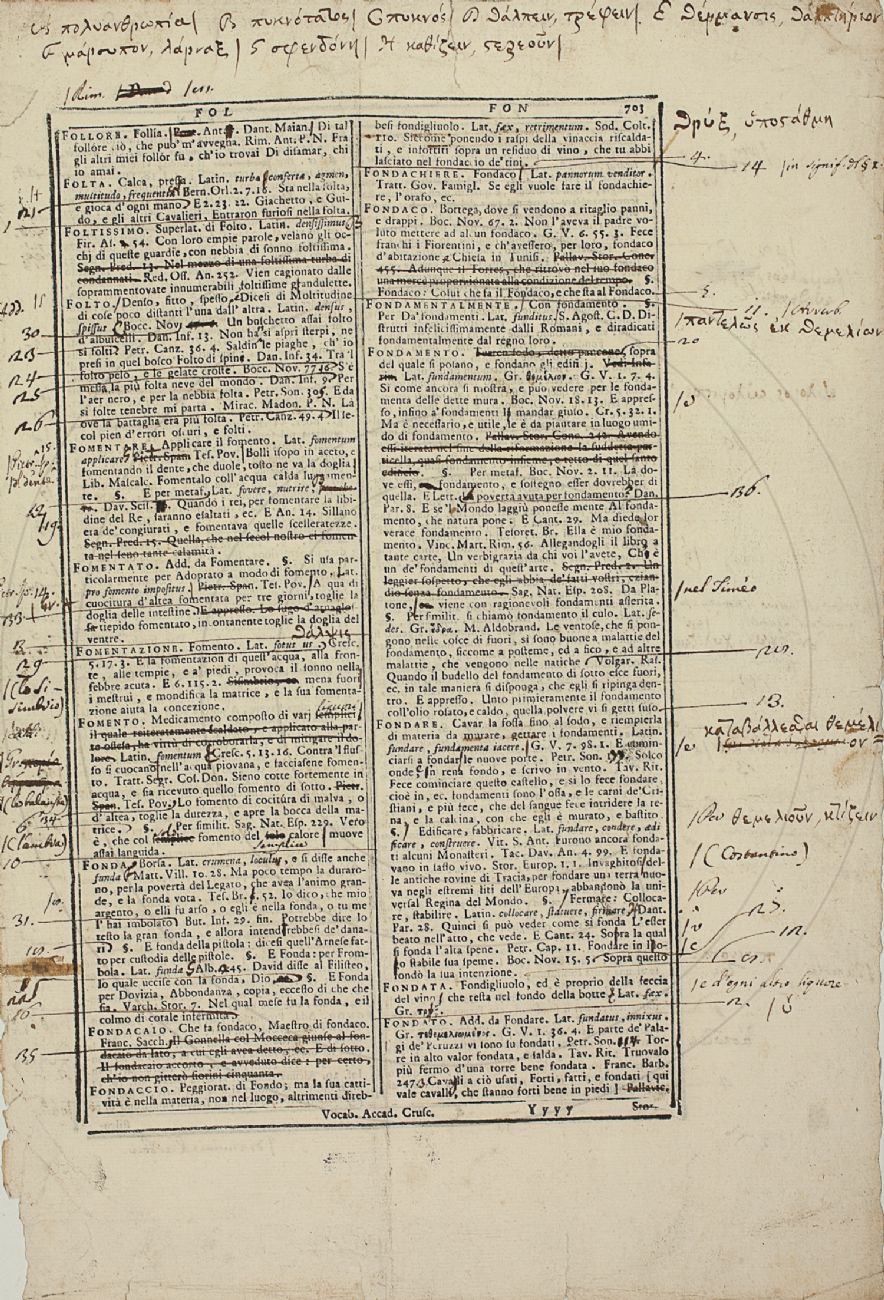 πολυανθρωπία| B πυκνότατος| C πυκνός| D θάλπειν, τρέφειν. E θέρμανσις, θαλπτήριον
μάρσυπον, λάρναξ| σφενδόνη| H καθίζειν,
FOL
FON 703
FOLLORE. Follía. Ant. Dant. Maian. Di tal
follore ciò, che può m'avvegna. Rim. Ant. P. N. Fra
gli altri miei follór fu, ch'io trovai Di disamar, chi
io amai.
FOLTA. Calca, pressa. Latin. turba conferta, agmen,
multitudo, frequentia. Bern. Orl. 2. 7. 16. Sta nella folta,
e gioca d'ogni mano. E 2. 23. 22. Giachetto, e Gui-
do, e gli altri Cavalieri, Entraron furiosi nella folta.
FOLTISSIMO. Superlat. di Folto. Latin. densissimus.
Fir. As. 54. Con loro empie parole, velano gli oc-
chj di queste guardie, con nebbia di sonno foltissima.
Segn. Pred. 13. Nel mezzo di una foltissima turba di
condannati. Red. Oss. An. 252. Vien cagionato dalle
soprammentovate innumerabili foltissime glandulette.
FOLTO. Denso, fitto, spesso. Dicesi di Moltitudine
di cose poco distanti l'una dall'altra. Latin. densus,
spissus. Bocc. Nov. Un boschetto assai folto
d'albuscelli. Dan. Inf. 13. Non ha sì aspri sterpi, ne
sì folti. Petr. Canz. 36. 4. Saldin le piaghe, ch'io
presi in quel bosco Folto di spine. Dan. Inf. 34. Tra 'l
folto pelo, e le gelate croste. Bocc. Nov. 77. 46. S'è
messa la più folta neve del mondo. Dan. Inf. 9. Per
l'aer nero, e per la nebbia folta. Petr. Son. 305. E da
sì folte tenebre mi parta. Mirac. Madon. P. N. Là
ove la battaglia era più folta. Petr. Canz. 49. 4. Il se-
col pien d'errori oscuri, e folti.
FOMENTARE. Applicare il fomento. Lat. fomentum
applicare. Pietr. Span. Tes. Pov. Bolli isopo in aceto, e
fomentando il dente, che duole, tosto ne va la doglia.
Lib. Malcalc. Fomentalo coll'acqua calda
te. §. E per metaf. Lat. fovere, nutrire.
Dav. Scis. Quando i rei, per fomentare la libi-
dine del Re, saranno esaltati, ec. E An. 14. Sillano
era de' congiurati, e fomentava quelle scelleratezze.
Segn. Pred. 15. Quella, che nel secol nostro ci fomen-
ta nel seno tante calamità.
FOMENTATO. Add. da Fomentare. §. Si usa par-
ticolarmente per Adoprato a modo di fomento. Lat.
pro fomento impositus. Pietr. Span. Tes. Pov. A qua di
cuocitura d'altea fomentata per tre giorni, toglie la
doglia delle intestine. E appresso. Lo sugo d'
sia tiepido fomentato, incontanente toglie la doglia del
ventre.
FOMENTAZIONE. Fomento. Lat. fotus us. Cresc.
5. 17. 3. E la fomentazion di quell'acqua, alla fron-
te, alle tempie, e a' piedi, provoca il sonno nella
febbre acuta. E 6. 115. 2. mena fuori
i mestrui, e mondifica la matrice, e la sua fomenta-
zione aiuta la concezione.
FOMENTO. Medicamento composto di varj semplici
il quale reiteratamente scaldato, e applicato alla par-
te offesa, ha virtù di corroborarla, e di mitigare il do-
lore. Latin. fomentum. Cresc. 5. 13. 16. Contra 'l flus-
so si cuocano nell'acqua piovana, e facciasene fomen-
to. Tratt. Segr. Col. Don. Sieno cotte fortemente in
acqua, e sia ricevuto quello fomento di sotto. Pietr.
Span. Tes. Pov. Lo fomento di cocitura di malva, o
d'altea, toglie la durezza, e apre la bocca della ma-
trice. §. Per similit. Sag. Nat. Esp. 229. Vero
è, che col semplice fomento del solo calore muove
assai languida.
FONDA. Borsa. Lat. crumena, loculus, e si disse anche
funda. Matt. Vill. 10. 28. Ma poco tempo la duraro-
no, per la povertà del Legato, che avea l'animo gran-
de, e la fonda vota. Tes. Br. 52. Io dico, che mio
argento, o elli fu arso, o egli è nella fonda, o tu me
l'hai imbolato. But. Inf. 29. fin. Potrebbe dire lo
testo la gran fonda, e allora intendrebbesi de' dana-
ri. §. E fonda della pistola: dicesi quell'Arnese fat-
to per custodia delle pistole. §. E Fonda: per From-
bola. Lat. funda. Alb. 245. David disse al Filisteo,
lo quale uccise con la fonda, Dio, §. E Fonda
per Dovizia, Abbondanza, copia, eccesso di che che
sia. Varch. Stor. 7. Nel qual mese fu la fonda, e il
colmo di cotale infermità.
FONDACAIO. Che fa fondaco, Maestro di fondaco.
Franc. Sacch. Il Gonnella col Mocceca giunse al fon-
dacaio da lato, a cui egli avea detto, ec. E di sotto.
Il fondacaio accorto, e avveduto dice: per certo,
ch'io non gitterò fiorini cinquanta.
FONDACCIO. Peggiorat. di Fondo; ma la sua catti-
vità è nella materia, non nel luogo, altrimenti direb-
besi fondigliuolo. Lat. fæx, retrimentum. Sod. Colt.
Siccome ponendo i raspi della vinaccia riscalda-
ti, e infortiti sopra un residuo di vino, che tu abbi
lasciato nel fondaccio de' tini.
FONDACHIERE. Fondaco. Lat. pannorum venditor.
Tratt. Gov. Famigl. Se egli vuole fare il fondachie-
re, l'orafo, ec.
FONDACO. Bottega, dove si vendono a ritaglio panni,
e drappi. Boc. Nov. 67. 2. Non l'aveva il padre vo-
luto mettere ad alcun fondaco. G. V. 6. 55. 3. Fece
franchi i Fiorentini, e ch'avessero, per loro, fondaco
d'abitazione, Chiesa in Tunisi. Pallav. Stor. Conc.
455. Adunque il Torres, che ritrovò nel suo fondaco
una merce proporzionata alla condizione del tempo. §.
Fondaco: Colui che fa il Fondaco, e che sta al Fondaco.
FONDAMENTALMENTE. Con fondamento. §.
Per Da' fondamenti. Lat. funditus. S. Agost. C. D. Di-
strutti infelicissimamente dalli Romani, e diradicati
fondamentalmente dal regno loro.
FONDAMENTO. Terren sodo, detto pancone, sopra
del quale si posano, e fondano gli edificj.
Lat. fundamentum. Gr. θεμέλιον. G. V. 1. 7. 4.
Sì come ancora si mostra, e può vedere per le fonda-
menta delle dette mura. Boc. Nov. 18. 13. E appres-
so, infino a' fondamenti il mandar giuso. Cr. 5. 32. 1.
Ma è necessario, e utile, le è da piantare in luogo umi-
do di fondamento. Pallav. Stor. Conc. 242. Avendo
essi iterata nel fine della riformazione la suddetta par-
ticella, quasi fondamento insieme, e tetto di quel santo
edificio. §. Per metaf. Boc. Nov. 2. 11. Là do-
ve essi, fondamento, e sostegno esser dovrebber di
quella. E Lett. la povertà avuta per fondamento. Dan.
Par. 8. E se 'l Mondo laggiù ponesse mente Al fonda-
mento, che natura pone. E Cant. 29. Ma diede lor
verace fondamento. Tesoret. Br. Ella è mio fonda-
mento. Vinc. Mart. Rim. 56. Allegandogli il libro a
tante carte, Un verbigrazia da chi voi l'avete, Ch'è
un de' fondamenti di quest'arte. Segn. Pred. 2. Un
leggier sospetto, che egli abbia de' fatti vostri, ezian-
dio senza fondamento. Sag. Nat. Esp. 208. Da Pla-
tone, viene con ragionevoli fondamenti asserita.
§. Per similit. si chiamò fondamento il culo. Lat. se-
des. Gr. ἕδρα. M. Aldobrand. Le ventose, che si pon-
gono nelle cosce di fuori, sì sono buone a malattie del
fondamento, siccome a posteme, ed a fico, e ad altre
malattie, che vengono nelle natiche. Volgar. Ras.
Quando il budello del fondamento di sotto esce fuori,
ec. in tale maniera si disponga, che egli si ripinga den-
tro. E appresso. Unto primieramente il fondamento
coll'olio rosato, e caldo, quella polvere vi si getti suso.
FONDARE. Cavar la fossa fino al sodo, e riempierla
di materia da murare, gettare i fondamenti. Latin.
fundare, fundamenta iacere. G. V. 7. 98. 1. E comin-
ciarsi a fondar le nuove porte. Petr. Son. Solco
onde, e 'n rena fondo, e scrivo in vento. Tav. Rit.
Fece cominciare questo castello, e sì lo fece fondare,
cioè in, ec. fondamenti sono l'ossa, e le carni de' Cri-
stiani, e più fece, che del sangue fece intridere la re-
na, e la calcina, con che egli è murato, e bastito.
§. Edificare, fabbricare. Lat. fundare, condere, ædi
ficare, construere. Vit. S. Ant. Furono ancora fonda-
ti alcuni Monasteri. Tac. Dav. An. 4. 99. E fonda-
vano in lasso vivo. Stor. Europ. 1. 1. Invaghitosi del-
le antiche rovine di Tracia, per fondare una terra nuo-
va negli estremi liti dell'Europa, abbandonò la uni-
versal Regina del Mondo. §. Fermare: Colloca-
re, stabilire. Latin. collocare, statuere, firmare. Dant.
Par. 28. Quinci si può veder come si fonda L'esser
beato nell'atto, che vede. E Cant. 24. Sopra la qual
si fonda l'alta spene. Petr. Cap. 11. Fondare in
po stabile sua speme. Boc. Nov. 15. 5. Sopra questo
fondò la sua intenzione.
FONDATA. Fondigliuolo, ed è proprio della feccia
del vino, che resta nel fondo della botte. Lat. fæx.
Gr.
FONDATO. Add. da Fondare. Lat. fundatus, innixus.
Gr. τεθεμελιωμένος. G. V. 1. 36. 4. E parte de' Pala-
gi de' Peruzzi vi sono su fondati. Petr. Son. Tor-
re in alto valor fondata, e salda. Tav. Rit. Truovalo
più fermo d'una torre bene fondata. Franc. Barb.
247. Cavalli a ciò usati, Forti, fatti, e fondati, qui
vale cavalli, che stanno forti bene in piedi. Pallavic.
Vocab. Accad. Crusc. Yyyy Stor.
θρύξ, ὑποστάθμη
4.
14
παντελῶς ἐκ θεμελίων
20
136.
nel Timéo
13.
καταβάλλεσθαι θεμέλι
ον
θεμελιοῦν, κτίζειν
(Costantino)
d'ogni altro signore
θάλψις
semplice
30
23
24
25
26
133
129
10
31.
135